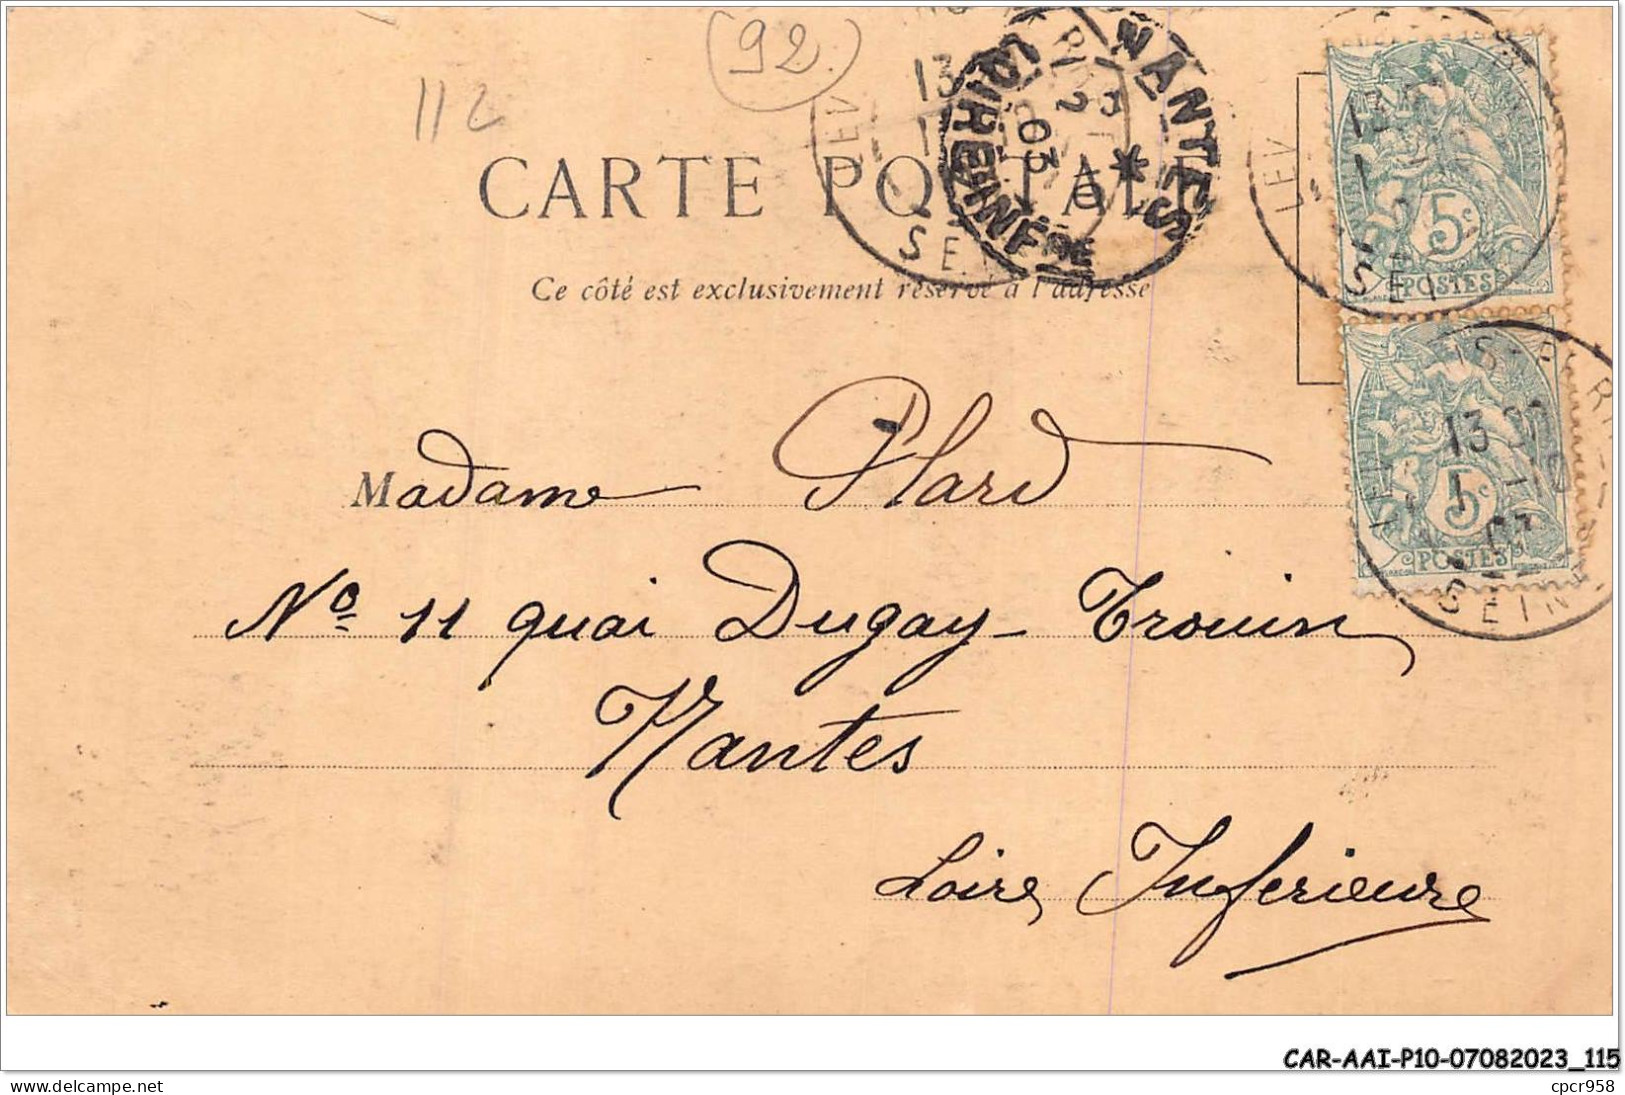 92
112
CARTE POSTALE
Ce côté est exclusivement réservé à l'adresse
NANTES
LOIRE INFÉRE
03
13
SEINE
5c
POSTES
13
SEINE
5c
POSTES
Madame Plard
No 11 quai Dugay-Trouin
Nantes
Loire Inferieure
CAR-AAI-P10-07082023_115
cpcr958